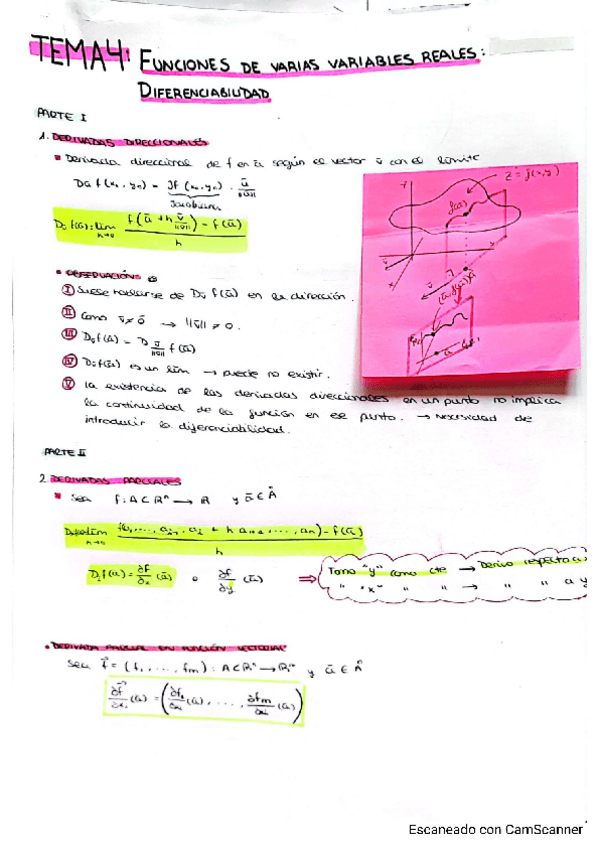 TEMA4: FUNCIONES DE VARIAS VARIABLES REALES:
DIFERENCIABILIDAD
PARTE I
1. DERIVADAS DIRECCIONALES
Derivada direccional de f en ā según el vector v̄ con el límite
Dū f(x₀, y₀) = Jf (x₀, y₀) · ū/||ū||
Jacobiana
Dv̄ f(ā) = lim h→0 (f(ā + h v̄/||v̄||) - f(ā))/h
z = f(x,y)
f(ā)
OBSERVACIÓN
I Suele hablarse de Dv̄ f(ā) en la dirección.
II Como v̄ ≠ 0̄ → ||v̄|| ≠ 0.
III Dv̄ f(ā) = D v̄/||v̄|| f(ā)
IV Dv̄ f(ā) es un lím → puede no existir.
V La existencia de las derivadas direccionales en un punto no implica
la continuidad de la función en ese punto. → Necesidad de
introducir la diferenciabilidad.
PARTE II
2. DERIVADAS PARCIALES
Sea f: A⊂Rⁿ → R y ā ∈ Å
Di f(ā) = ∂f/∂x (ā) o ∂f/∂y (ā) ⇒ Tomo "y" como cte → Derivo respecto a
" "x" " " → " " a y
• DERIVADA PARCIAL EN FUNCIÓN VECTORIAL
Sea f⃗ = (f₁, ..., fm) : A⊂Rⁿ → Rᵐ y ā ∈ Å
∂f⃗/∂xi (ā) = (∂f₁/∂xi (ā), ..., ∂fm/∂xi (ā))
Escaneado con CamScanner